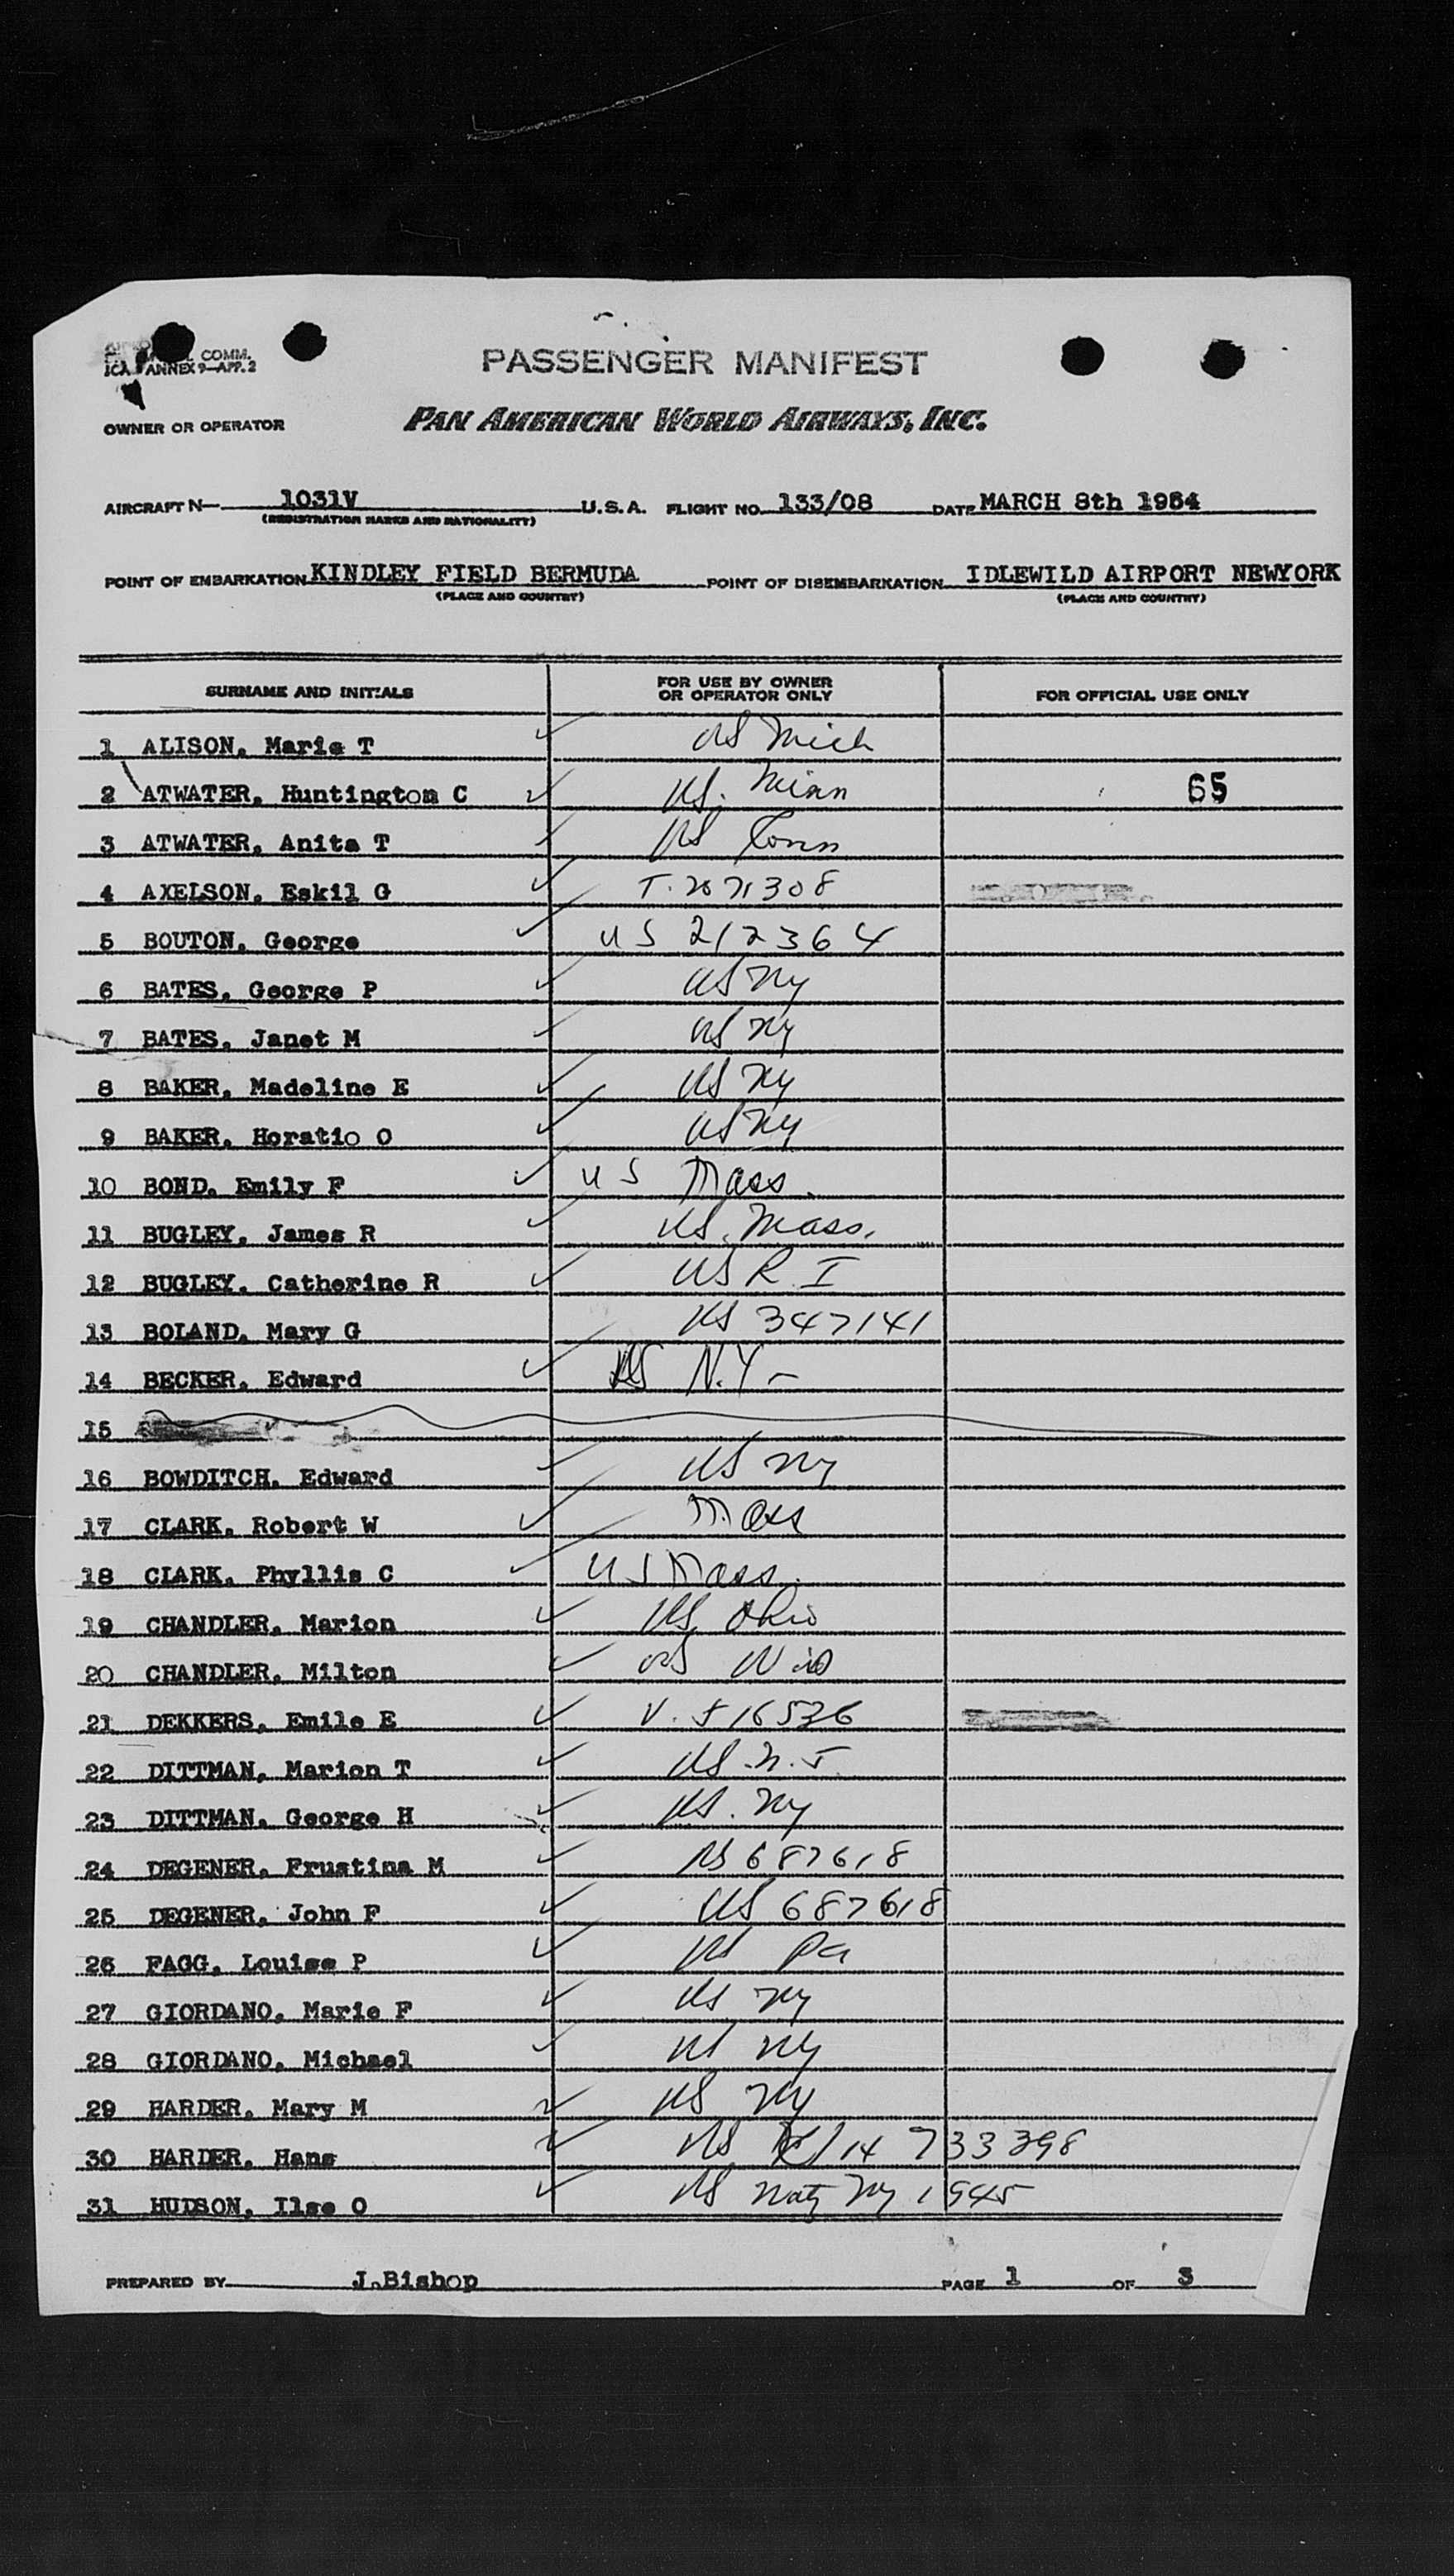 COMM.
ICA ANNEX 9—APP. 2
PASSENGER MANIFEST
OWNER OR OPERATOR PAN AMERICAN WORLD AIRWAYS, INC.
AIRCRAFT N— 1031V U.S.A. FLIGHT NO. 133/08 DATE MARCH 8th 1954
(REGISTRATION MARKS AND NATIONALITY)
POINT OF EMBARKATION KINDLEY FIELD BERMUDA POINT OF DISEMBARKATION IDLEWILD AIRPORT NEWYORK
(PLACE AND COUNTRY) (PLACE AND COUNTRY)
SURNAME AND INITIALS FOR USE BY OWNER OR OPERATOR ONLY FOR OFFICIAL USE ONLY
1 ALISON, Marie T US Mich
2 ATWATER, Huntington C US. 65
3 ATWATER, Anita T US Conn
4 AXELSON, Eskil G T.2071308
5 BOUTON, George US 212364
6 BATES, George P US NY
7 BATES, Janet M US NY
8 BAKER, Madeline E US NY
9 BAKER, Horatio O US NY
10 BOND, Emily F US Mass.
11 BUGLEY, James R US. Mass.
12 BUGLEY, Catherine R US R I
13 BOLAND, Mary G US 347141
14 BECKER, Edward US N.Y-
15
16 BOWDITCH, Edward US NY
17 CLARK, Robert W Mass
18 CLARK, Phyllis C US Mass.
19 CHANDLER, Marion US Ohio
20 CHANDLER, Milton US
21 DEKKERS, Emile E V. 516536
22 DITTMAN, Marion T US N.J.
23 DITTMAN, George H US. NY
24 DEGENER, Frustina M US 687618
25 DEGENER, John F US 687618
26 FAGG, Louise P US Pa
27 GIORDANO, Marie F US NY
28 GIORDANO, Michael US NY
29 HARDER, Mary M US NY
30 HARDER, Hans US 14 733398
31 HUDSON, Ilse O US Natz NY 1945
PREPARED BY J.Bishop PAGE 1 OF 3